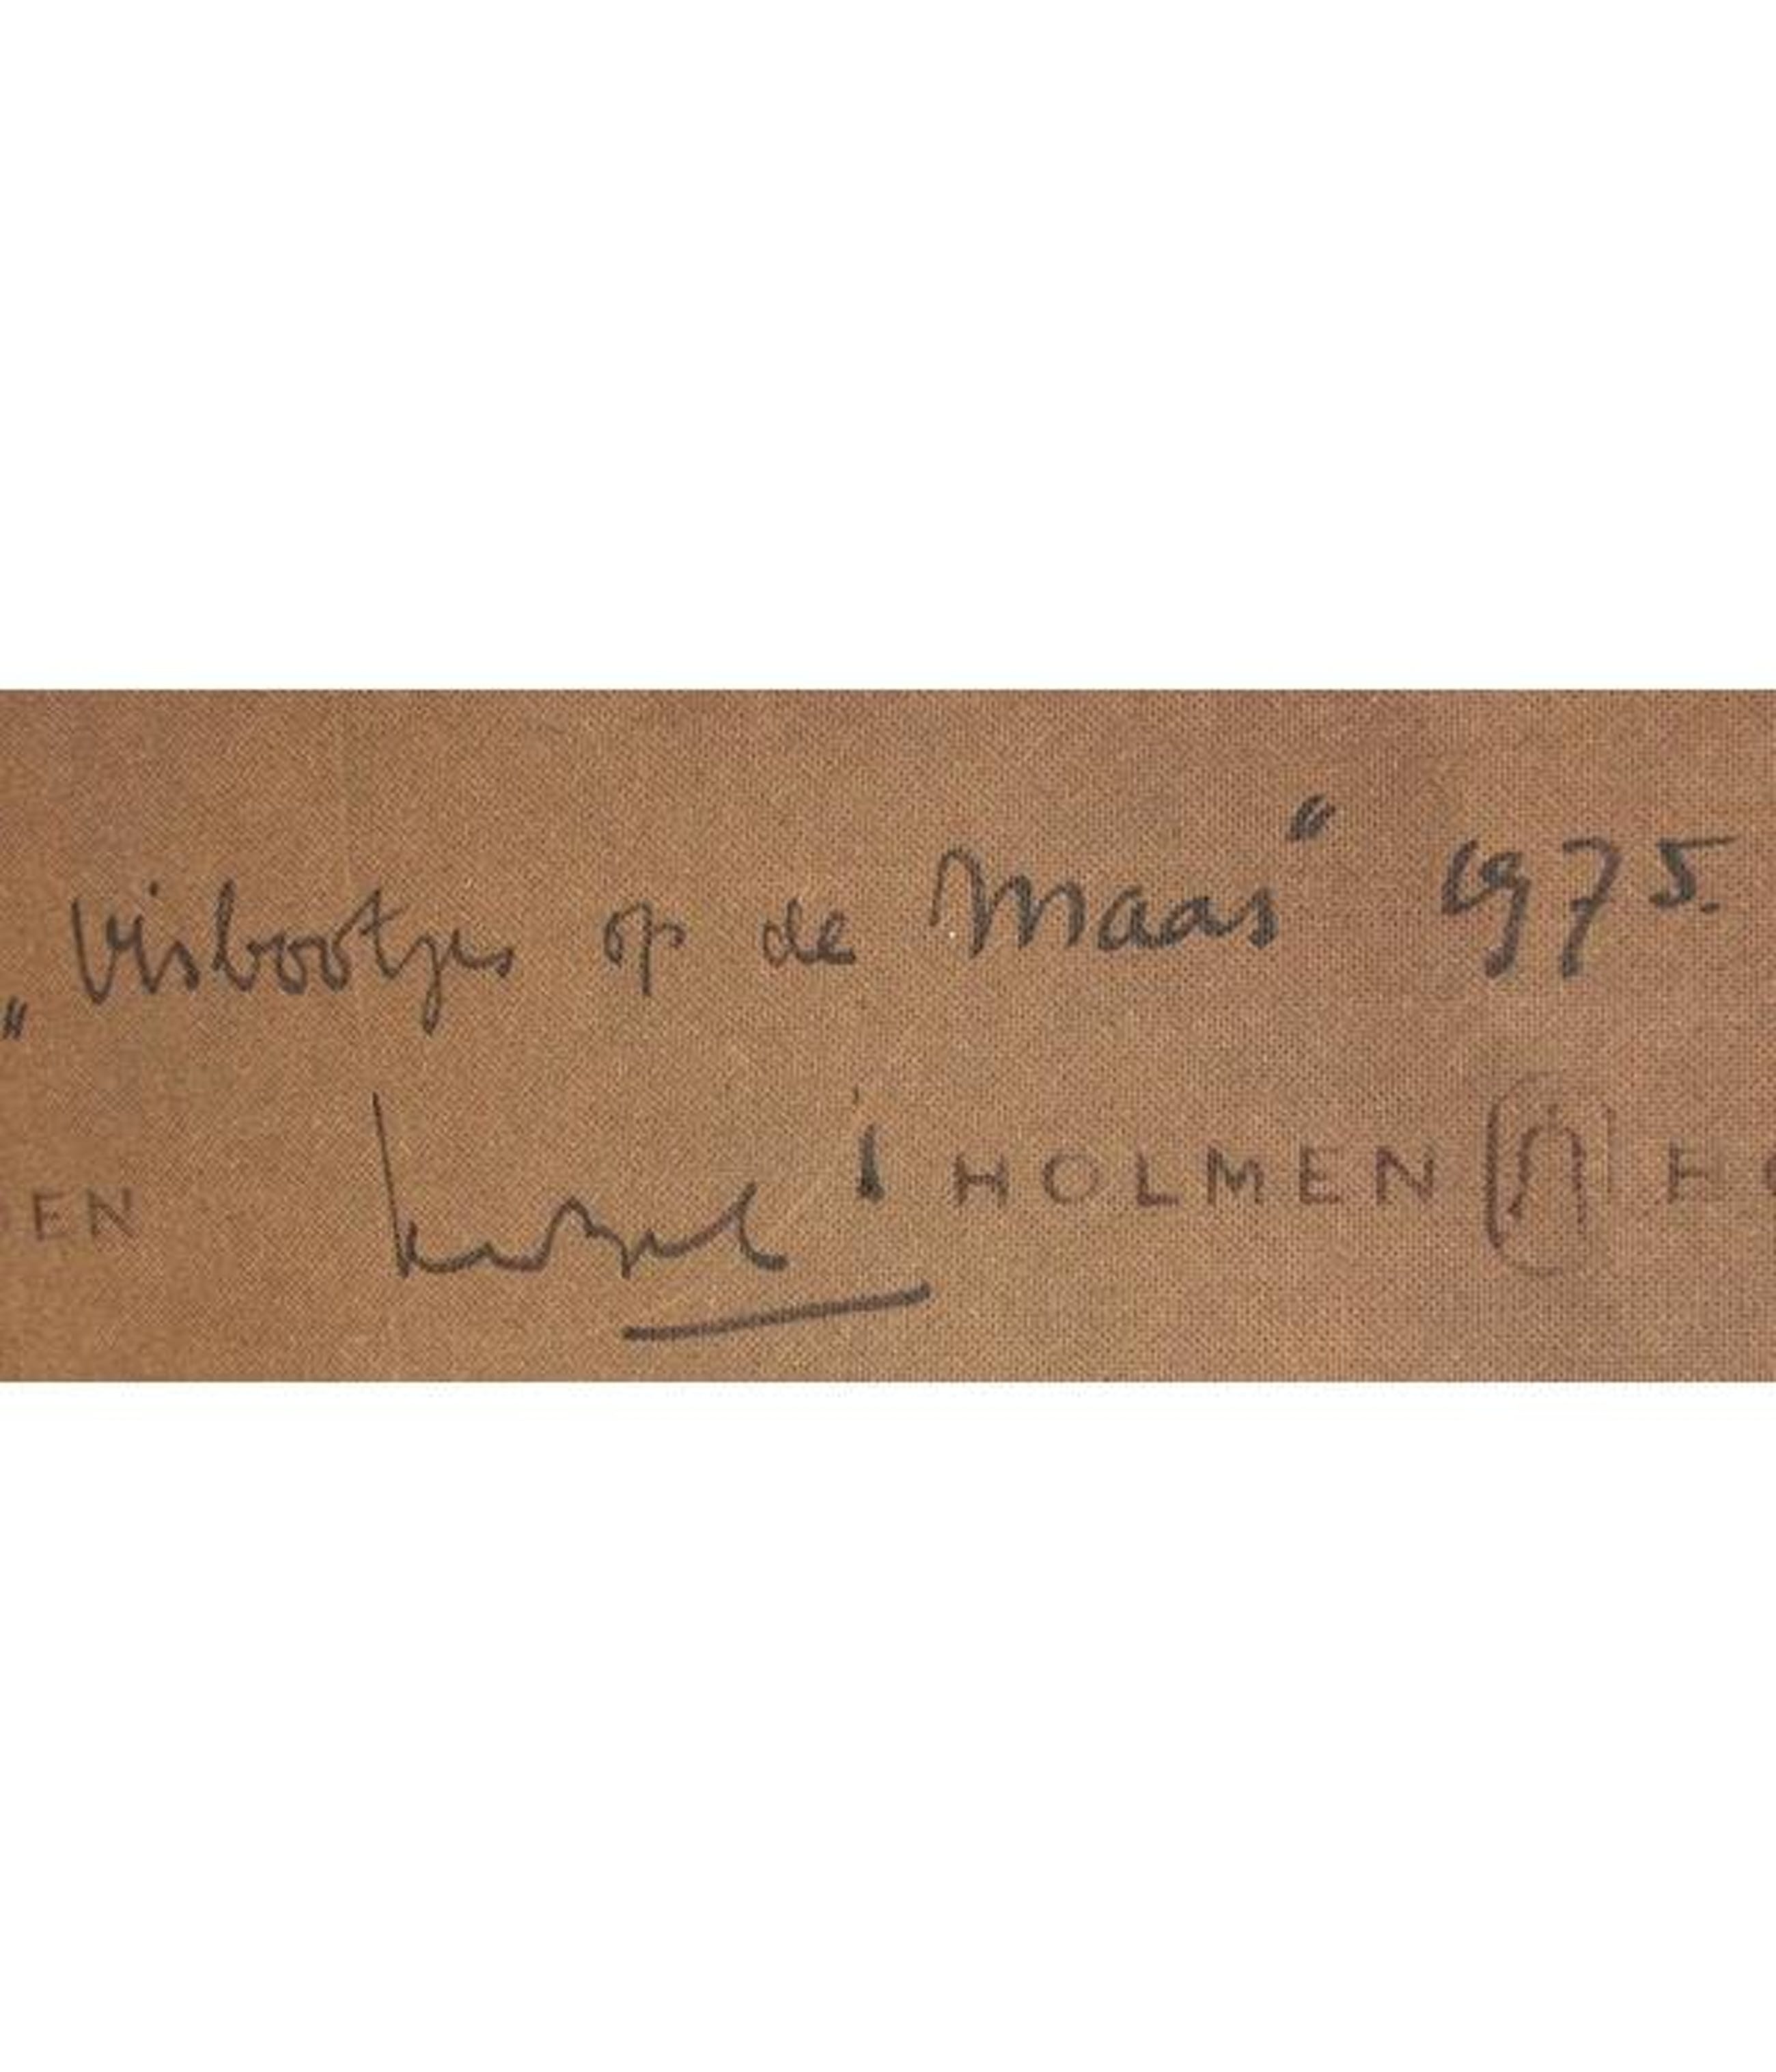 „Visbootjes op de Maas" 1975.
EN HOLMEN H